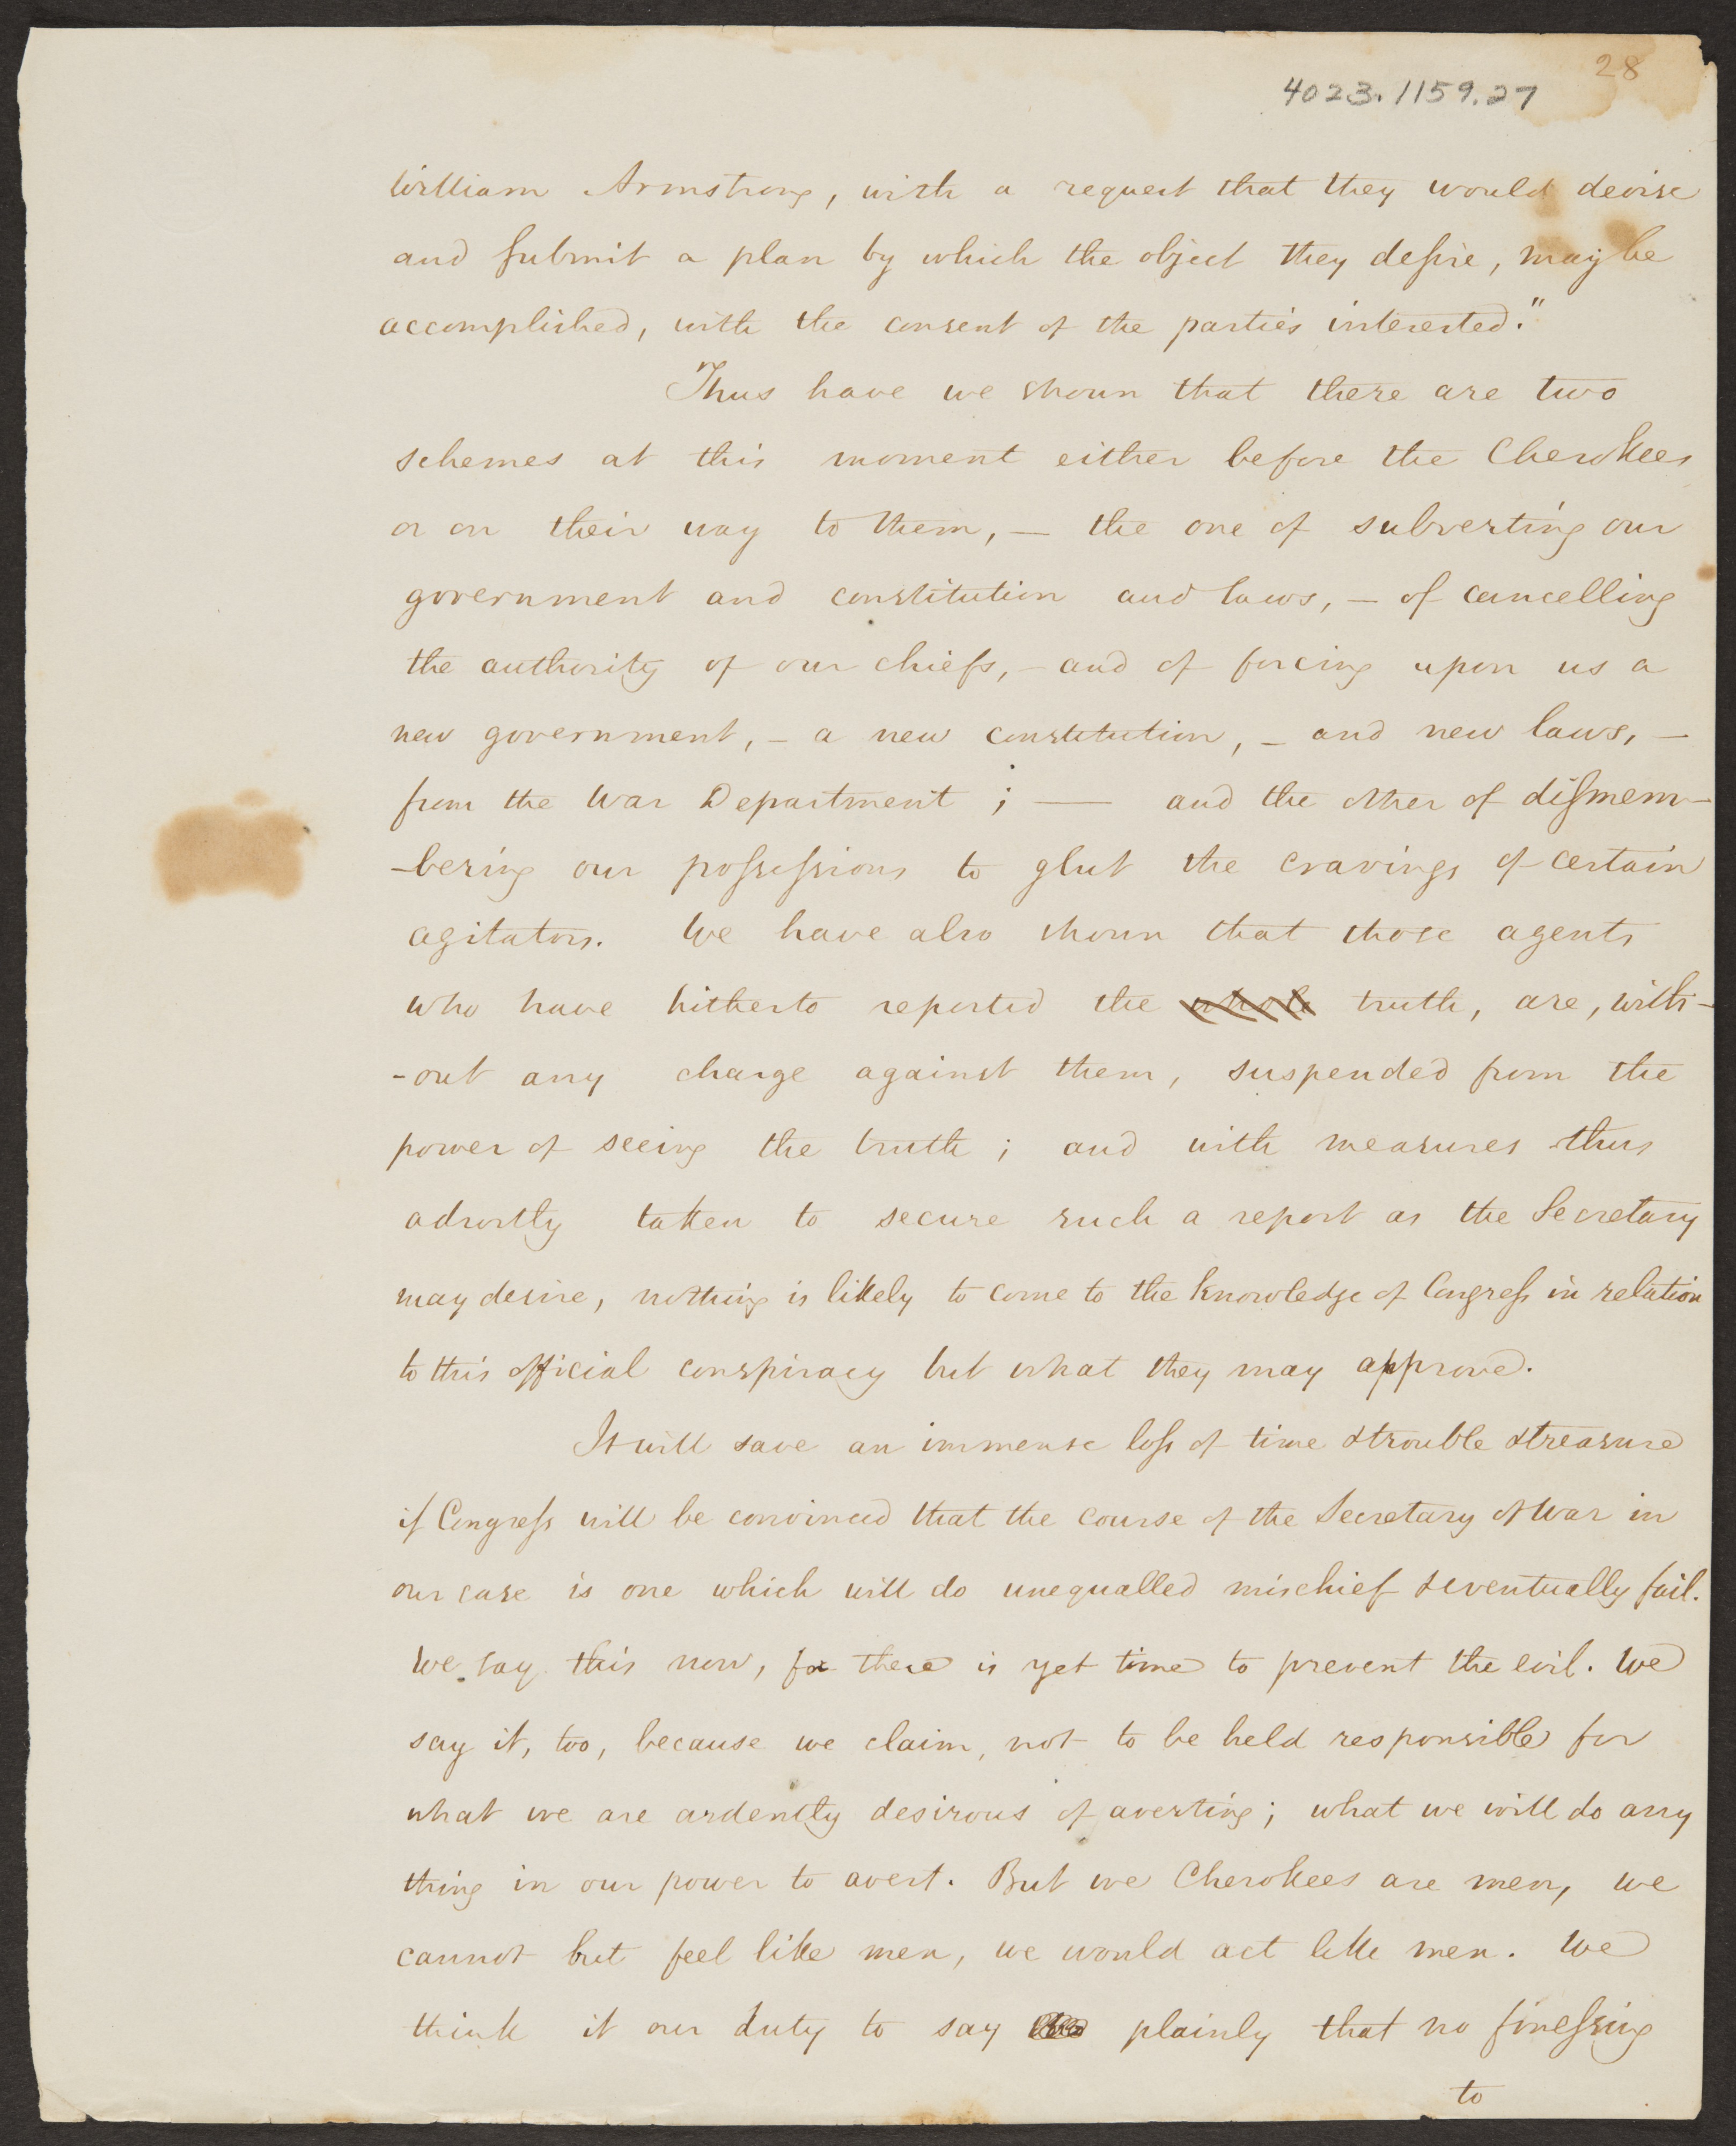 28
4023.1159.27
William Armstrong, with a request that they would devise
and submit a plan by which the object they desire, may be
accomplished, with the consent of the parties interested."
Thus have we shown that there are two
schemes at this moment either before the Cherokees
or on their way to them, — the one of subverting our
government and constitution and laws, — of cancelling
the authority of our chiefs, — and of forcing upon us a
new government, — a new constitution, — and new laws, —
from the War Department ; — and the other of dismem-
-bering our possessions to glut the cravings of certain
agitators. We have also shown that those agents
who have hitherto reported the whole truth, are, with-
-out any charge against them, suspended from the
power of seeing the truth ; and with measures thus
adroitly taken to secure such a report as the Secretary
may desire, nothing is likely to come to the knowledge of Congress in relation
to this official conspiracy but what they may approve.
It will save an immense loss of time & trouble & treasure
if Congress will be convinced that the course of the Secretary of War in
our case is one which will do unequalled mischief & eventually fail.
We say this now, for there is yet time to prevent the evil. We
say it, too, because we claim, not to be held responsible for
what we are ardently desirous of averting; what we will do any
thing in our power to avert. But we Cherokees are men, we
cannot but feel like men, we would act like men. We
think it our duty to say plainly that no finessing
to